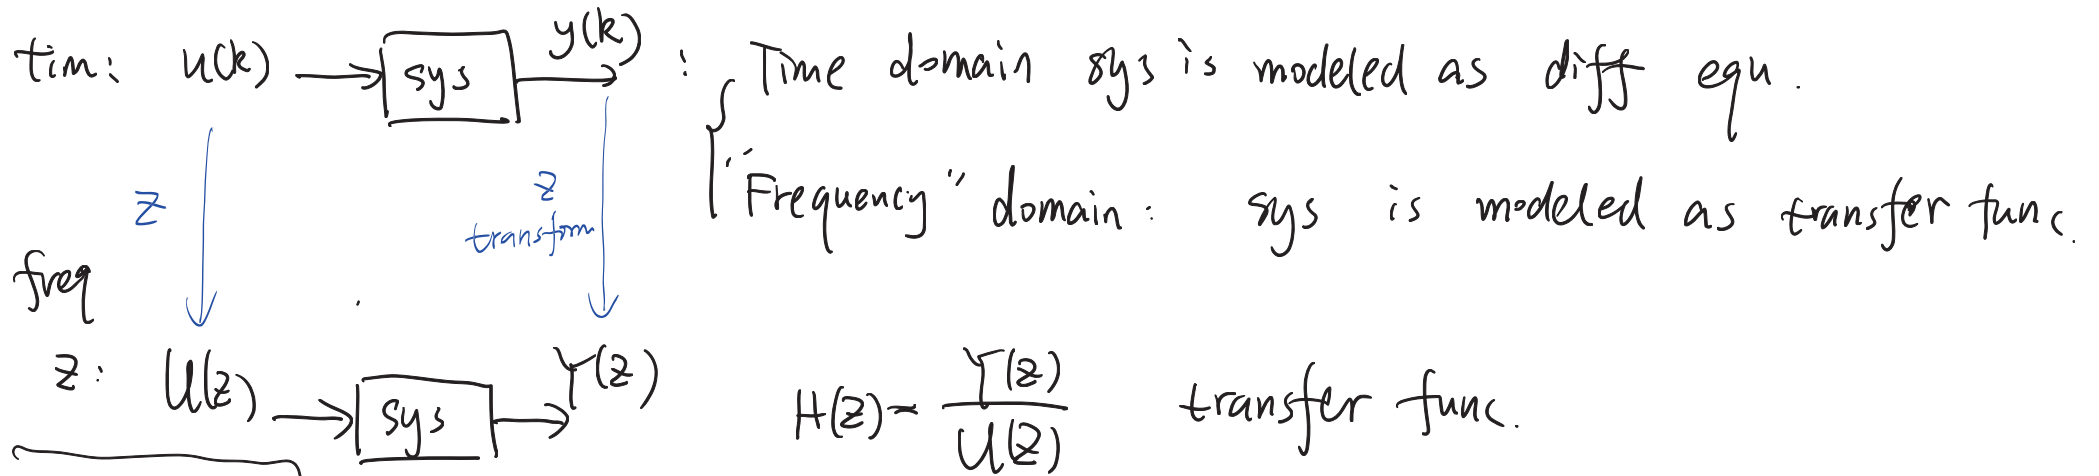 tim: u(k) → sys → y(k) : Time domain sys is modeled as diff equ.
z z transform "Frequency" domain: sys is modeled as transfer func.
freq
z: U(z) → sys → Y(z) H(z) = Y(z) / U(z) transfer func.